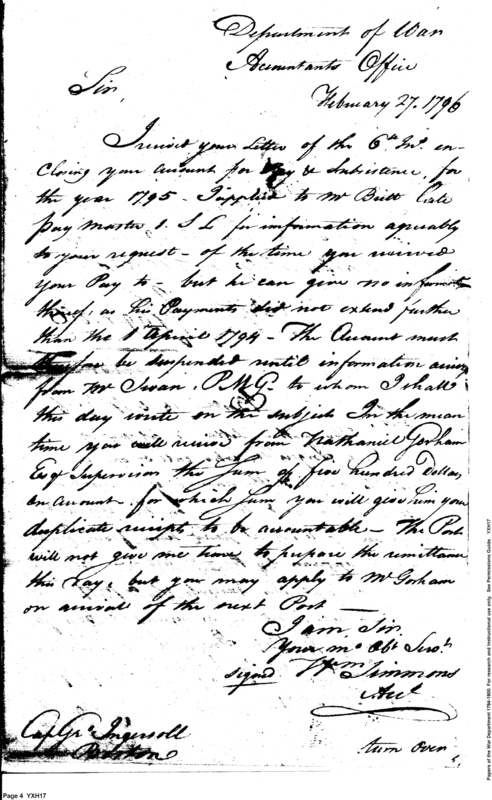 Department of War
Accountants Office
February 27. 1796
Sir,
I receivd your Letter of the 6th Inst. en-
closing your Account for Pay & Subsistence, for
the year 1795 - I applied to Mr Britt late
Pay Master S. L for information agreeably
to your request - of the time you received
your Pay to - but he can give no information
thereof, as his Payments did not extend further
than the 1 April 1794 - The Account must
therefore be suspended until information arrives
from Mr Swan, P.M.G. to whom I shall
this day write on the subject In the mean
time you will receive from Nathaniel Gorham
Esqr Supervisor the Sum of five hundred Dollars
on Account, for which Sum you will give him your
duplicate receipts to be accountable - The Post
will not give me time to prepare the remittance
this Day, but you may apply to Mr Gorham
on arrival of the next Post -
I am, Sir,
Your mo Obt Servt.
signed Wm Simmons
Acct
Cap. Go. Ingersoll
Boston
turn over
Page 4 YXH17
Papers of the War Department 1784-1800. For research and instructional use only. See Permissions Guide. YXH17